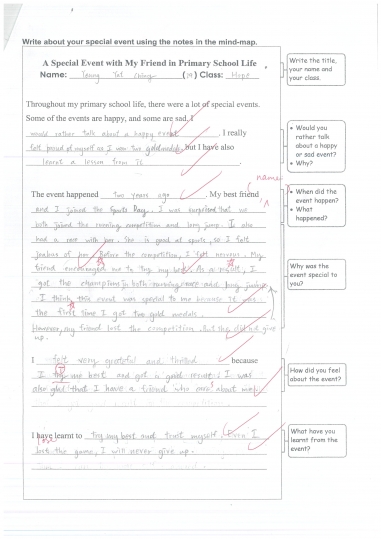 Write about your special event using the notes in the mind-map.
A Special Event with My Friend in Primary School Life
Name: Yeung Yat (19) Class: Hope
Write the title, your name and your class.
Throughout my primary school life, there were a lot of special events.
Some of the events are happy, and some are sad. I
would rather talk about a happy event. I really
felt proud of myself as I won two gold medals, but I have also
learnt a lesson from it
Would you rather talk about a happy or sad event?
Why?
The event happened two years ago. My best friend
name
and I joined the Sports Day. I was surprised that we
both joined the running competition and long jump. I also
had a race with her. She is good at sports, so I felt
jealous of her. Before the competition, I felt nervous. My
friend encouraged me to try my best. As a result, I
got the champion in both running race and long jump.
I think this event was special to me because it was
the first time I got two gold medals.
However, my friend lost the competition. But she did not give
up.
When did the event happen?
What happened?
Why was the event special to you?
I felt very grateful and thrilled because
I try me best and got a good result. I was
also glad that I have a friend who cares about me.
How did you feel about the event?
I have learnt to try my best and trust myself. Even I
lost the game, I will never give up.
What have you learnt from the event?